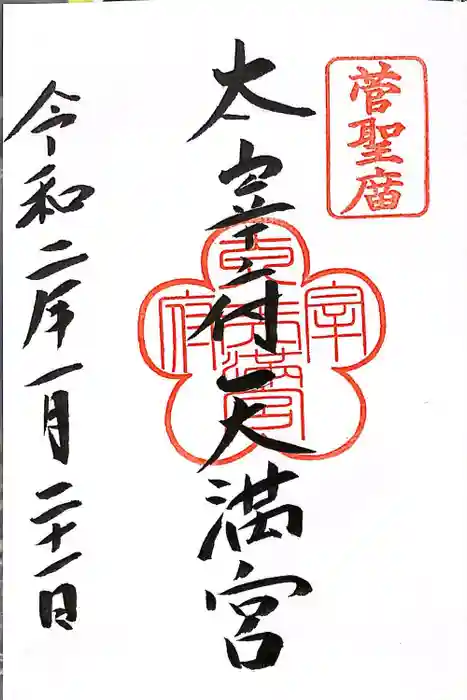 菅聖庿
太宰府天満宮
令和二年一月二十一日